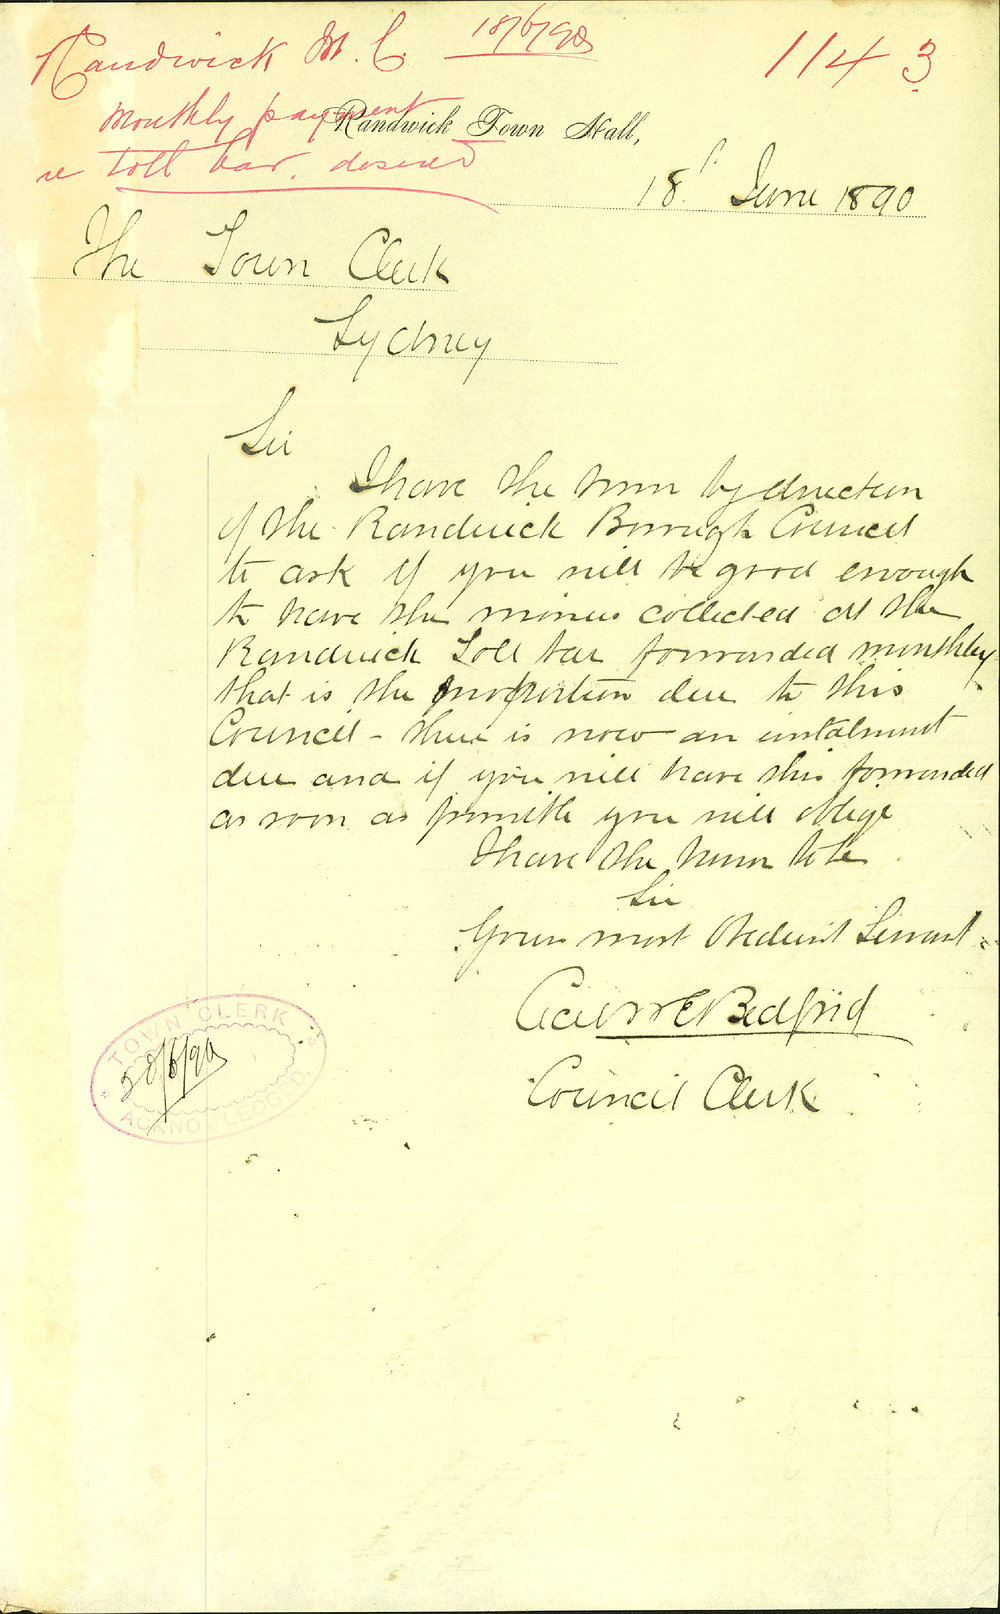 Randwick M. C 18/6/90
1143
Monthly payment
re toll bar. desired
Randwick Town Hall,
18 June 1890
The Town Clerk
Sydney
Sir
I have the honor by direction
of the Randwick Borough Council
to ask if you will be good enough
to have the monies collected at the
Randwick Toll bar forwarded monthly
that is the proportion due to this
Council - there is now an instalment
due and if you will have this forwarded
as soon as possible you will oblige
I have the honor to be
Sir
Your most Obedient Servant
E Bedford
Council Clerk
TOWN CLERK
/6/90
ACKNOWLEDGED.